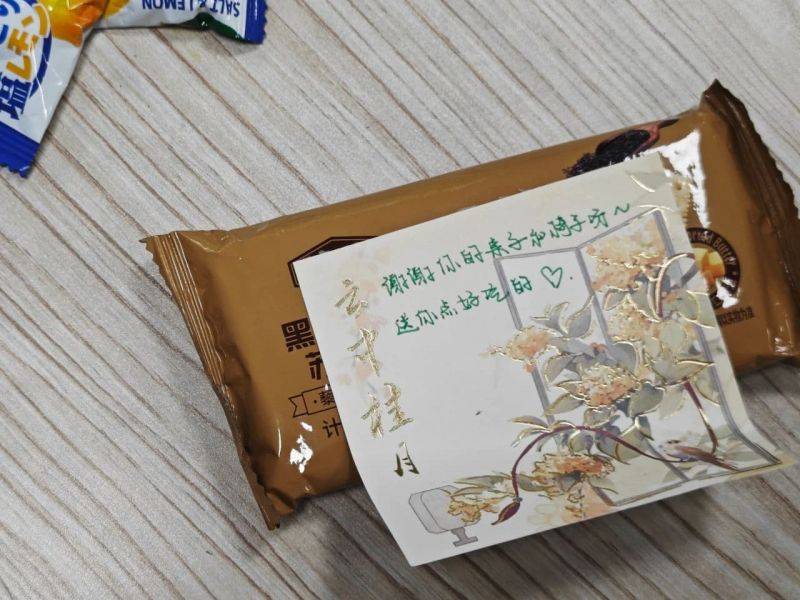 SALT & LEMON
塩レモン
谢谢你的 和橘子呀~
送你点好吃的♡.
云中桂月
黑
计
Butter